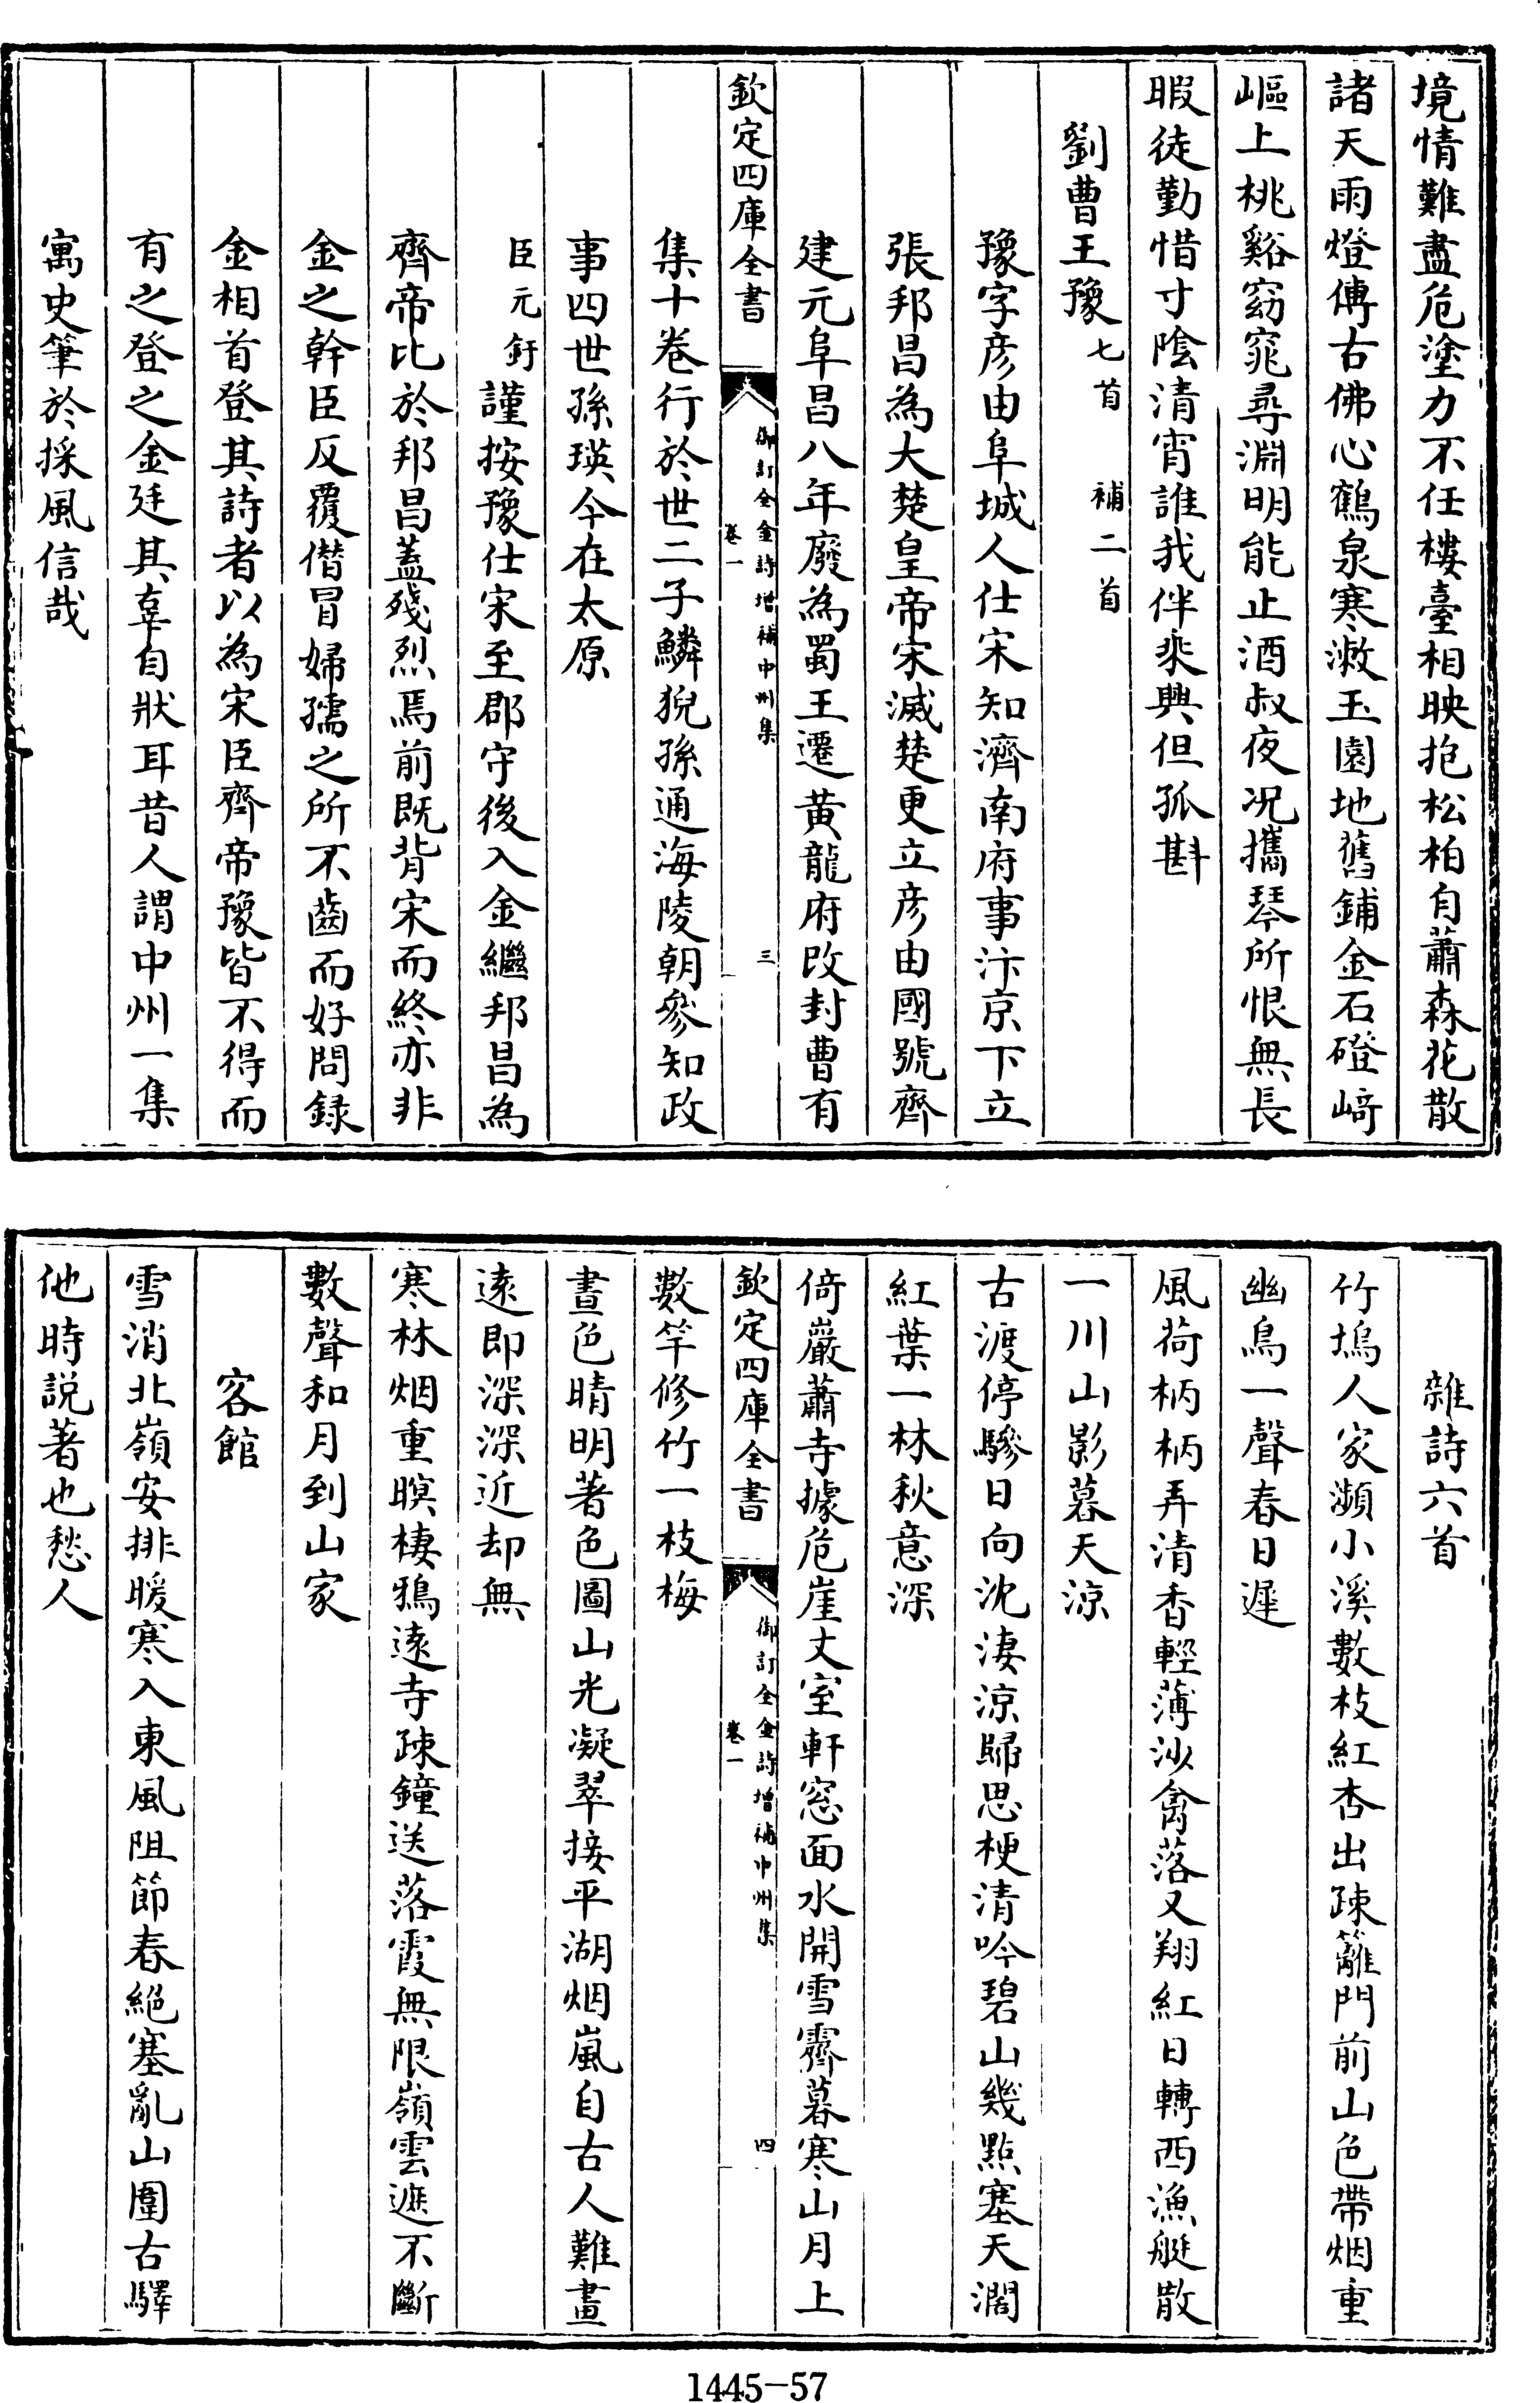 境情難盡危塗力不任樓臺相映抱松柏自蕭森花散
諸天雨燈傳古佛心鶴泉寒漱玉園地舊鋪金石磴﨑
嶇上桃谿窈窕尋淵明能止酒叔夜况攜琴所恨無長
暇徒勤惜寸陰清宵誰我伴乘興但孤斟
劉曹王豫七首 補二首
豫字彦由阜城人仕宋知濟南府事汴京下立
張邦昌為大楚皇帝宋滅楚更立彦由國號齊
建元阜昌八年廢為蜀王遷黄龍府改封曹有
欽定四庫全書 御訂全金詩增補中州集 卷一 三
集十卷行於世二子鱗猊孫通海陵朝參知政
事四世孫瑛今在太原
臣元釪謹按豫仕宋至郡守後入金繼邦昌為
齊帝比於邦昌蓋殘烈焉前既背宋而終亦非
金之幹臣反覆僭冒婦孺之所不齒而好問録
金相首登其詩者以為宋臣齊帝豫皆不得而
有之登之金廷其辜自狀耳昔人謂中州一集
寓史筆於採風信哉
雜詩六首
竹塢人家瀕小溪數枝紅杏出疎籬門前山色帶烟重
幽鳥一聲春日遲
風荷柄柄弄清香輕薄沙禽落又翔紅日轉西漁艇散
一川山影暮天涼
古渡停驂日向沈淒涼歸思梗清吟碧山幾點塞天濶
紅葉一林秋意深
倚巖蕭寺據危崖丈室軒窓面水開雪霽暮寒山月上
欽定四庫全書 御訂全金詩增補中州集 卷一 四
數竿修竹一枝梅
晝色晴明著色圖山光凝翠接平湖烟嵐自古人難畫
遠即深深近却無
寒林烟重暝棲鴉遠寺疎鐘送落霞無限嶺雲遮不斷
數聲和月到山家
客館
雪消北嶺安排暖寒入東風阻節春絕塞亂山圍古驛
他時説著也愁人
1445-57